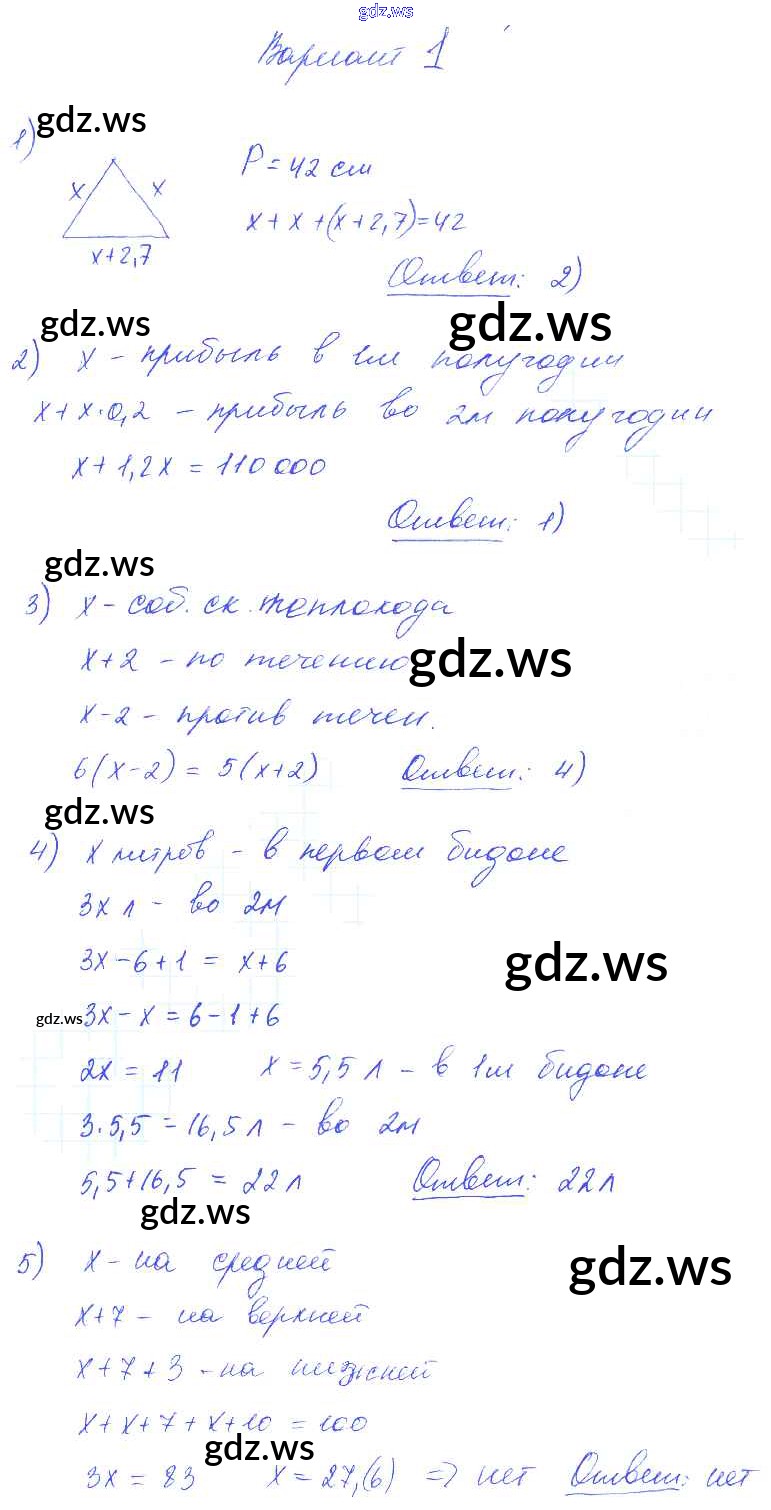 gdz.ws
Вариант 1
gdz.ws
1)
x x
x+2,7
P = 42 см
x + x + (x + 2,7) = 42
Ответ: 2)
gdz.ws
gdz.ws
2) x - прибыль в 1м полугодии
x + x·0,2 - прибыль во 2м полугодии
x + 1,2x = 110 000
Ответ: 1)
gdz.ws
3) x - соб. ск. теплохода
x+2 - по течению
gdz.ws
x-2 - против течен.
6(x-2) = 5(x+2) Ответ: 4)
gdz.ws
4) x литров - в первом бидоне
3x л - во 2м
3x - 6 + 1 = x + 6
gdz.ws
gdz.ws
3x - x = 6 - 1 + 6
2x = 11 x = 5,5 л - в 1м бидоне
3·5,5 = 16,5 л - во 2м
5,5 + 16,5 = 22 л Ответ: 22 л
gdz.ws
5) x - на средней
gdz.ws
x+7 - на верхней
x+7+3 - на нижней
x + x+7 + x+10 = 100
gdz.ws
3x = 83 x = 27,(6) => нет Ответ: нет